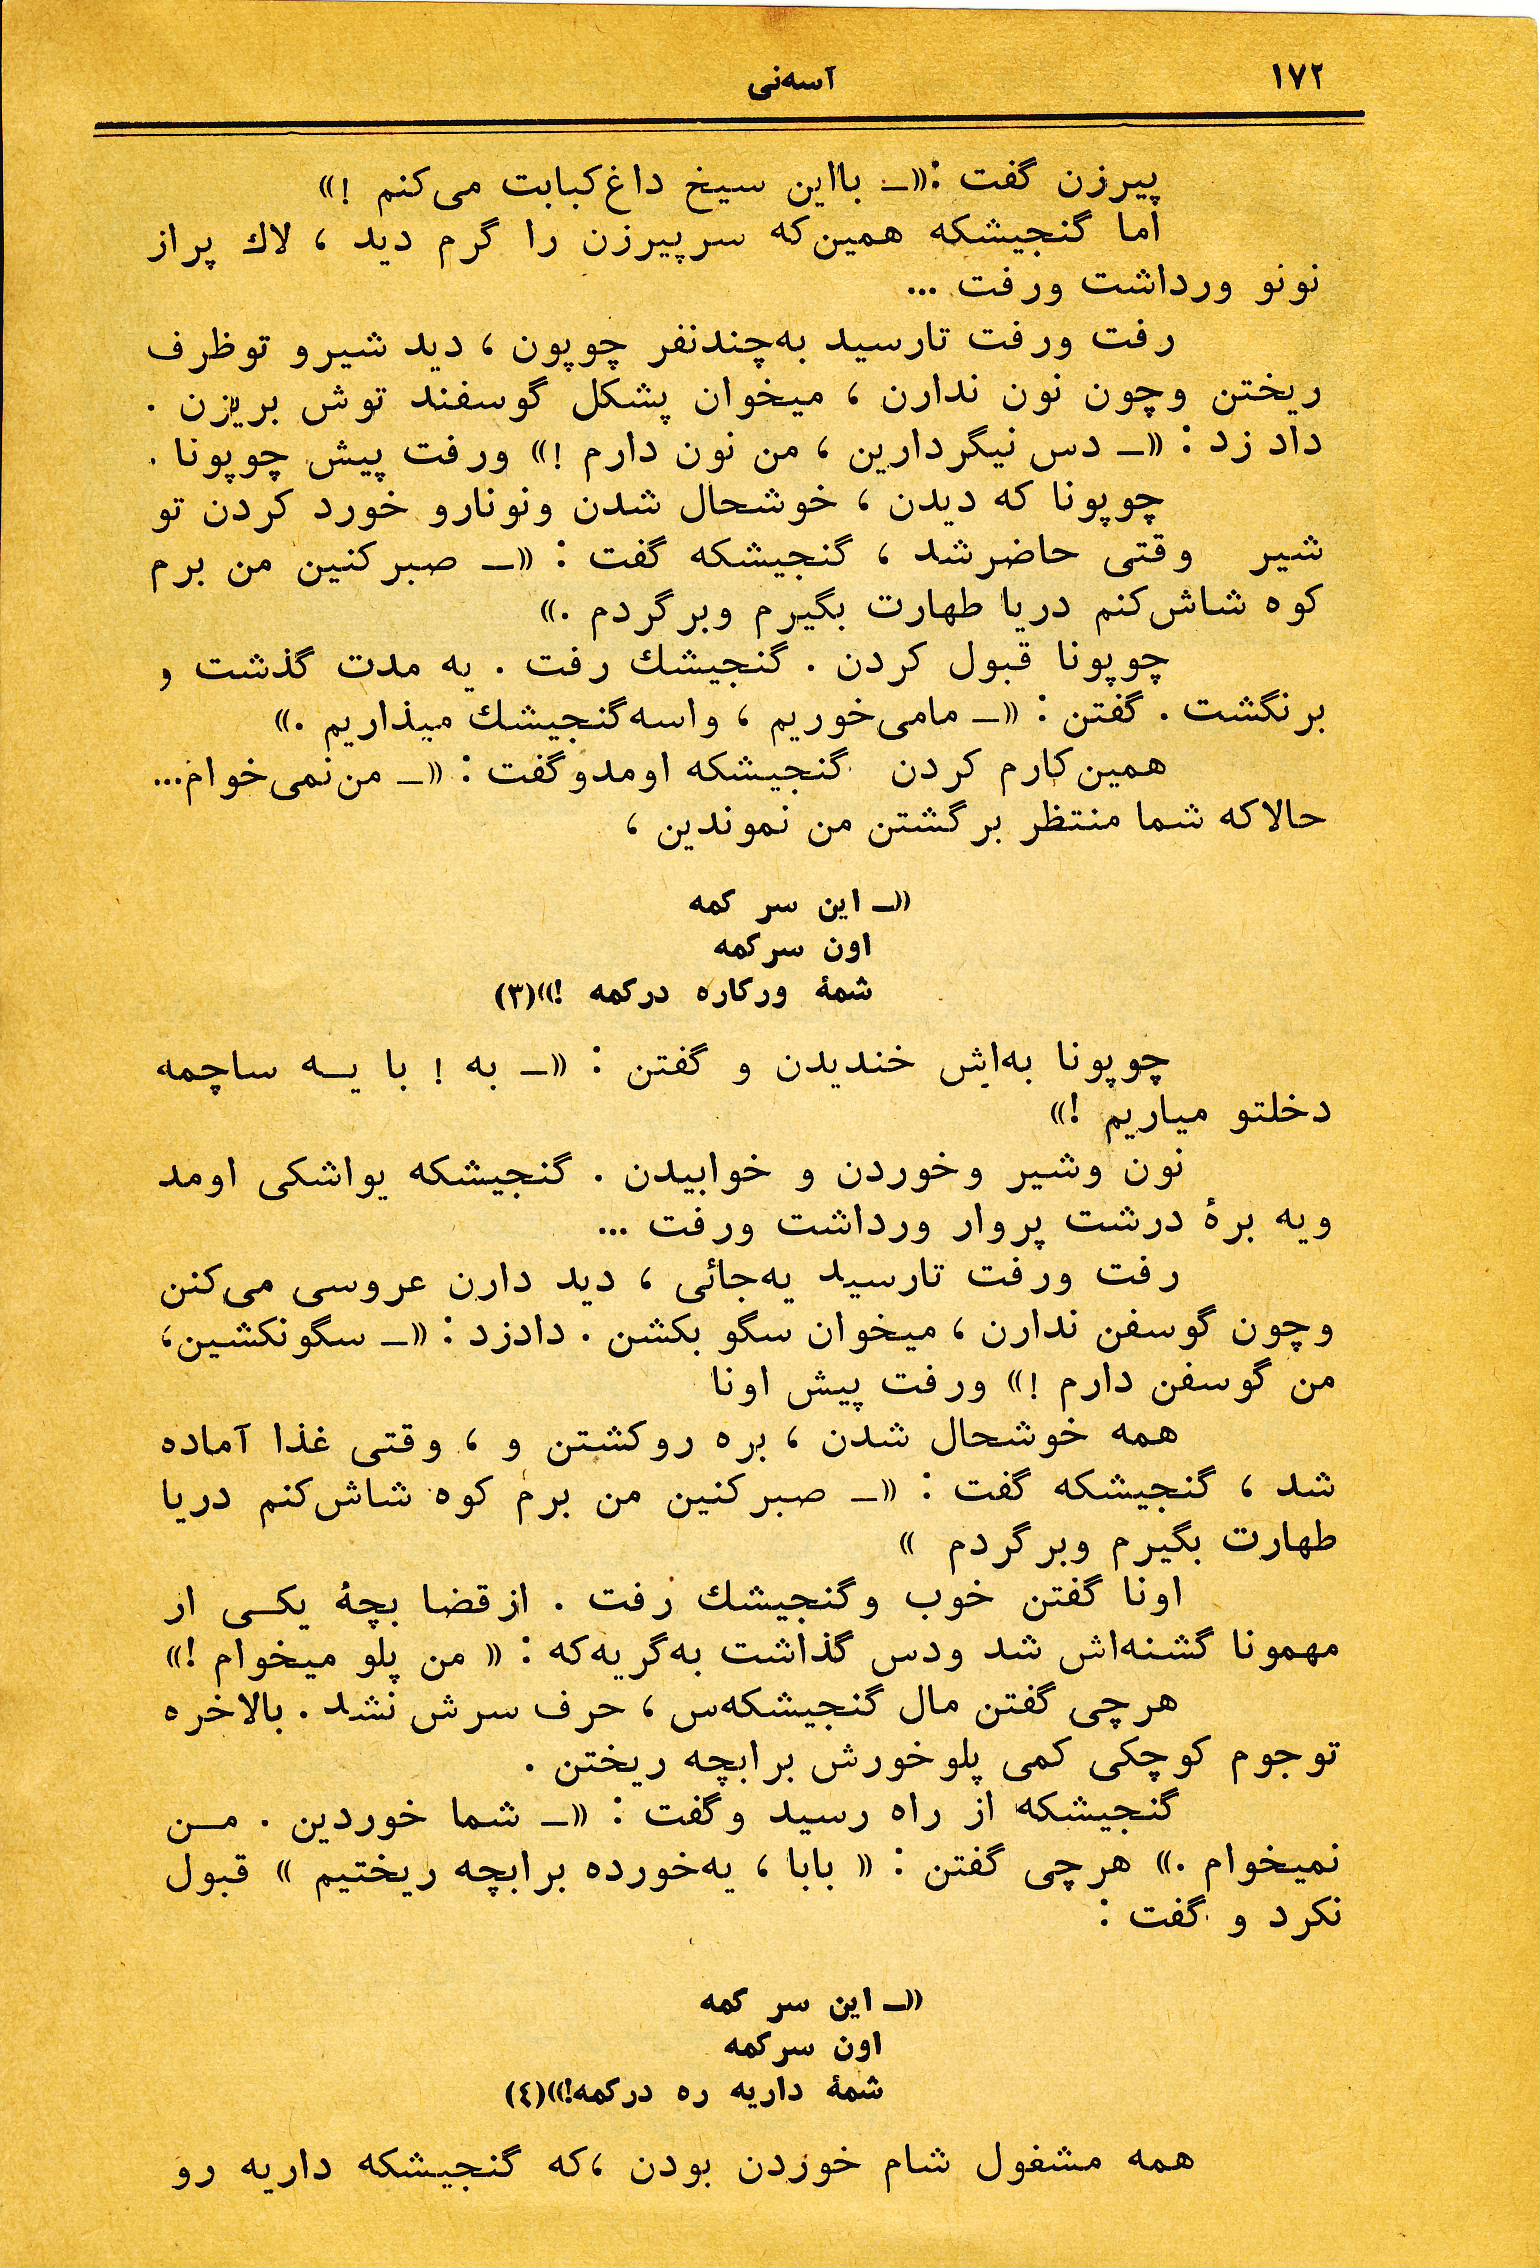 ۱۷۲
آسه‌نی
پیرزن گفت :«ـ بااین سیخ داغ‌کبابت می‌کنم !»
اما گنجیشکه همین‌که سرپیرزن را گرم دید ، لاك پراز
نونو ورداشت ورفت ...
رفت ورفت تارسید به‌چندنفر چوپون ، دید شیرو توظرف
ریختن وچون نون ندارن ، میخوان پشکل گوسفند توش بریزن .
داد زد : «ـ دس نیگردارین ، من نون دارم !» ورفت پیش چوپونا .
چوپونا که دیدن ، خوشحال شدن ونونارو خورد کردن تو
شیر وقتی حاضرشد ، گنجیشکه گفت : «ـ صبرکنین من برم
کوه شاش‌کنم دریا طهارت بگیرم وبرگردم .»
چوپونا قبول کردن . گنجیشك رفت . یه مدت گذشت و
برنگشت . گفتن : «ـ مامی‌خوریم ، واسه‌گنجیشك میذاریم .»
همین‌کارم کردن گنجیشکه اومدوگفت : «ـ من‌نمی‌خوام...
حالاکه شما منتظر برگشتن من نموندین ،
«ـ این سر کمه
اون سرکمه
شمهٔ ورکاره درکمه !»(۳)
چوپونا به‌اش خندیدن و گفتن : «ـ به ! با یـه ساچمه
دخلتو میاریم !»
نون وشیر وخوردن و خوابیدن . گنجیشکه یواشکی اومد
ویه برهٔ درشت پروار ورداشت ورفت ...
رفت ورفت تارسید یه‌جائی ، دید دارن عروسی می‌کنن
وچون گوسفن ندارن ، میخوان سگو بکشن . دادزد : «ـ سگونکشین،
من گوسفن دارم !» ورفت پیش اونا
همه خوشحال شدن ، بره روکشتن و ، وقتی غذا آماده
شد ، گنجیشکه گفت : «ـ صبرکنین من برم کوه شاش‌کنم دریا
طهارت بگیرم وبرگردم »
اونا گفتن خوب وگنجیشك رفت . ازقضا بچهٔ یکـی ار
مهمونا گشنه‌اش شد ودس گذاشت به‌گریه‌که : « من پلو میخوام !»
هرچی گفتن مال گنجیشکه‌س ، حرف سرش نشد . بالاخره
توجوم کوچکی کمی پلوخورش برابچه ریختن .
گنجیشکه از راه رسید وگفت : «ـ شما خوردین . مـن
نمیخوام .» هرچی گفتن : « بابا ، یه‌خورده برابچه ریختیم » قبول
نکرد و گفت :
«ـ این سر کمه
اون سرکمه
شمهٔ داریه ره درکمه!»(٤)
همه مشغول شام خوردن بودن ،که گنجیشکه داریه رو